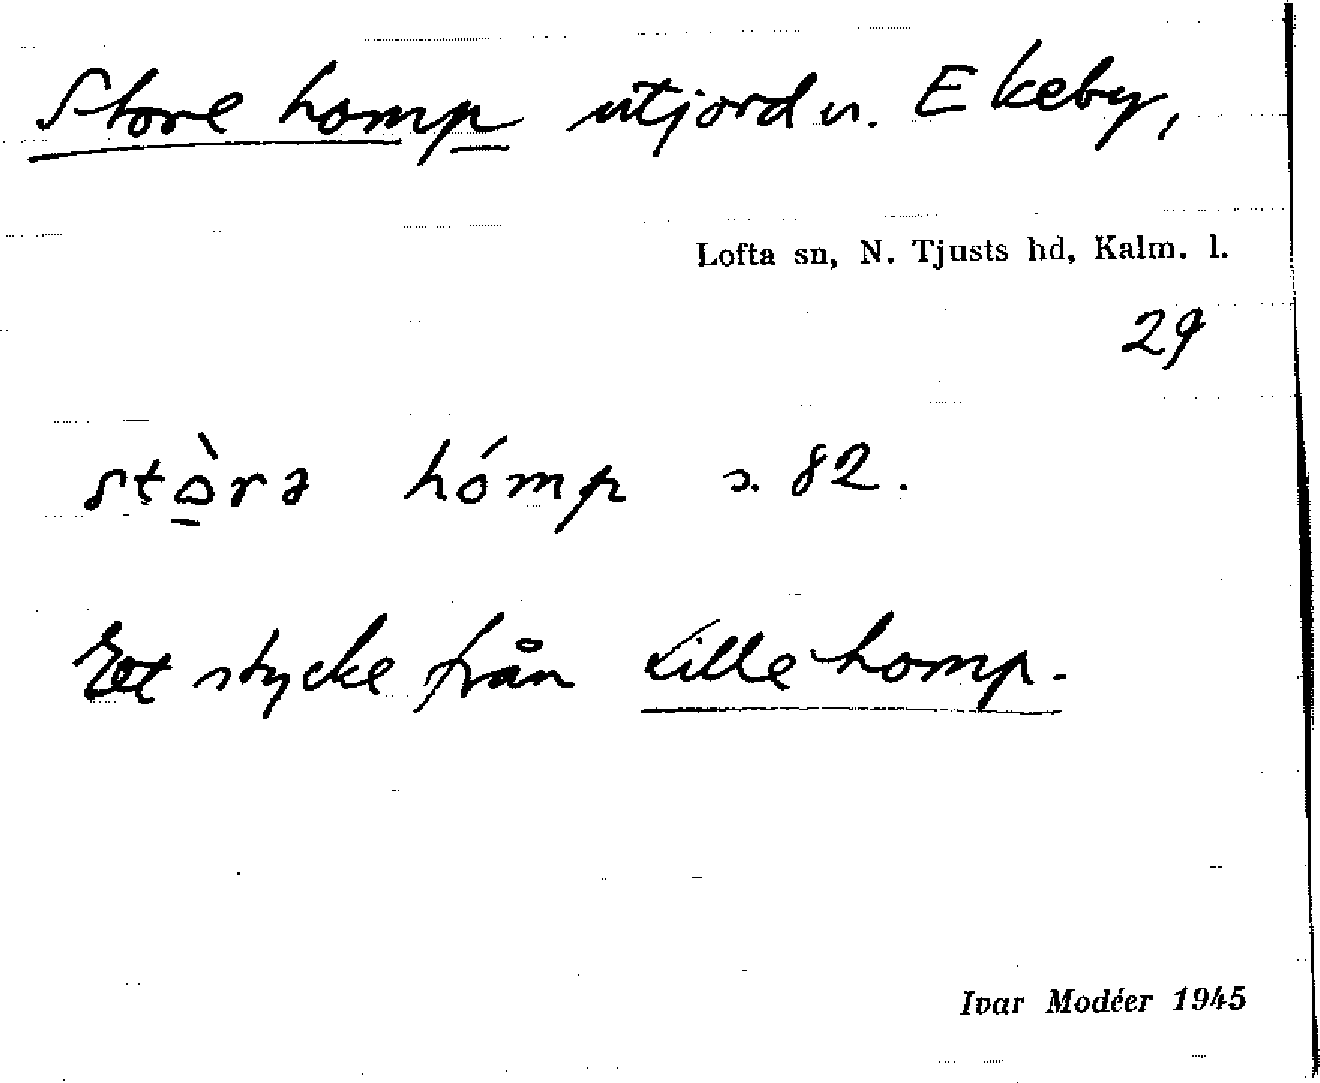 Store homp utjord u. Ekeby,
Lofta sn, N. Tjusts hd, Kalm. l.
29
stòrə hómp s. 82.
Ett stycke från Lille homp.
Ivar Modéer 1945